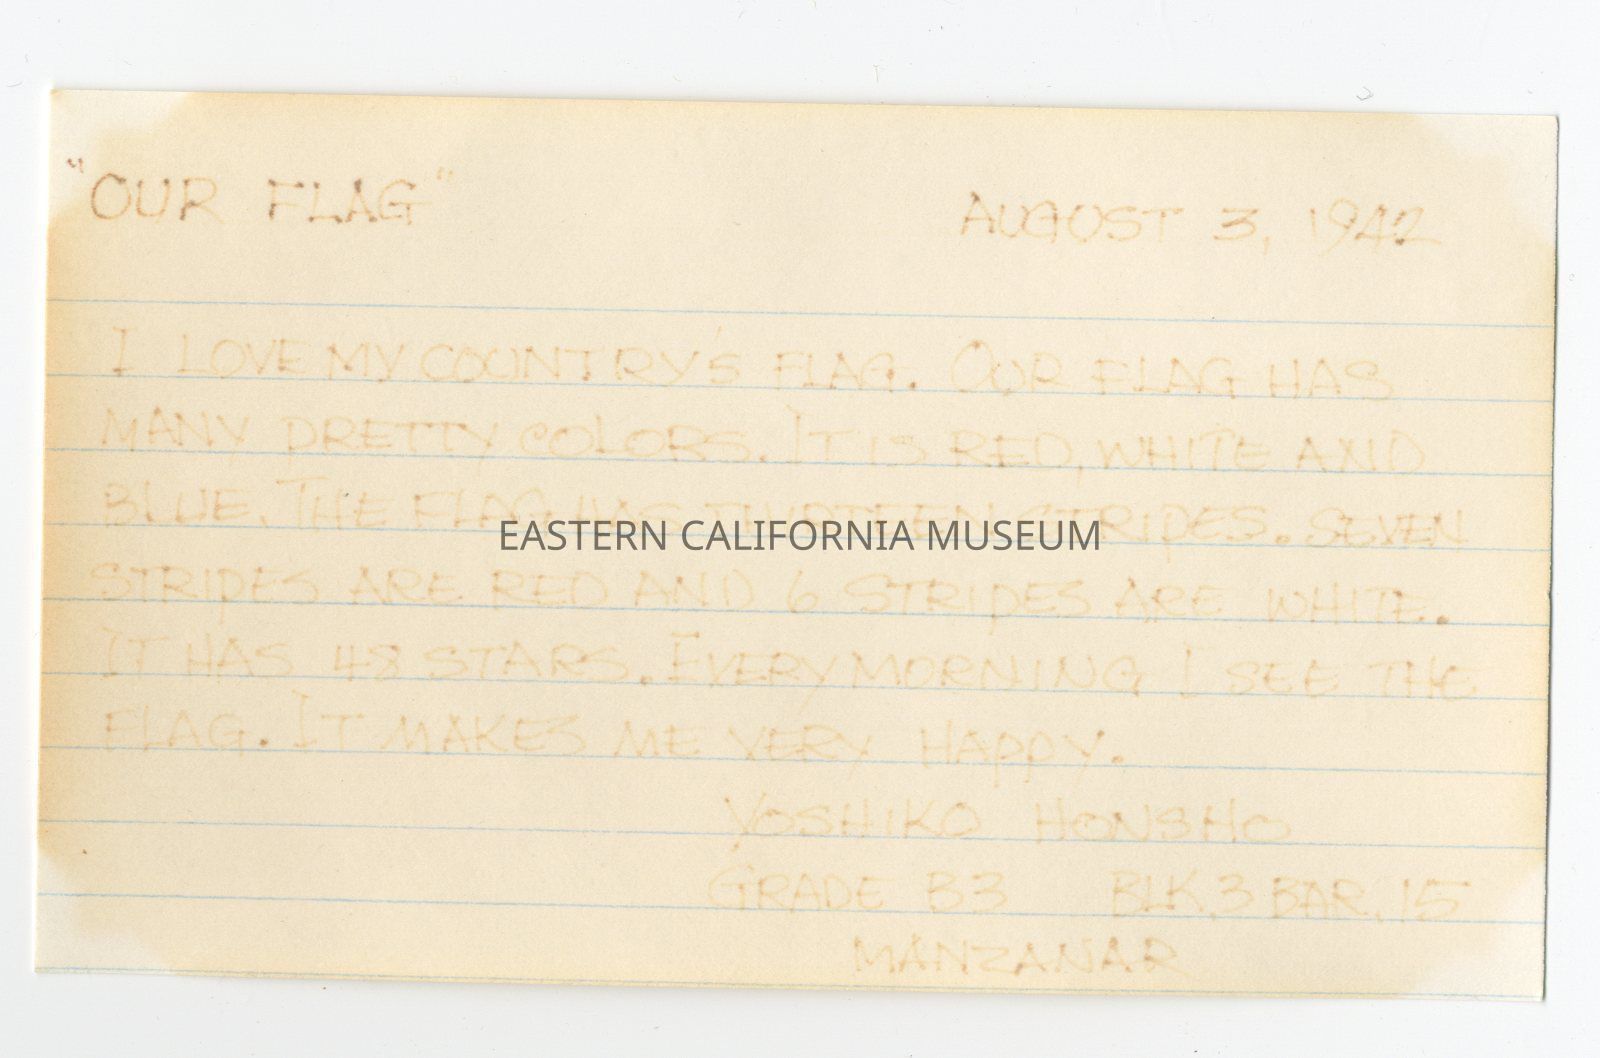 "OUR FLAG"
AUGUST 3, 1942
I LOVE MY COUNTRY'S FLAG. OUR FLAG HAS
MANY PRETTY COLORS. IT IS RED, WHITE AND
BLUE. THE FLAG HAS THIRTEEN STRIPES. SEVEN
EASTERN CALIFORNIA MUSEUM
STRIPES ARE RED AND 6 STRIPES ARE WHITE.
IT HAS 48 STARS. EVERY MORNING I SEE THE
FLAG. IT MAKES ME VERY HAPPY.
YOSHIKO HONSHO
GRADE B3 BLK. 3 BAR. 15
MANZANAR